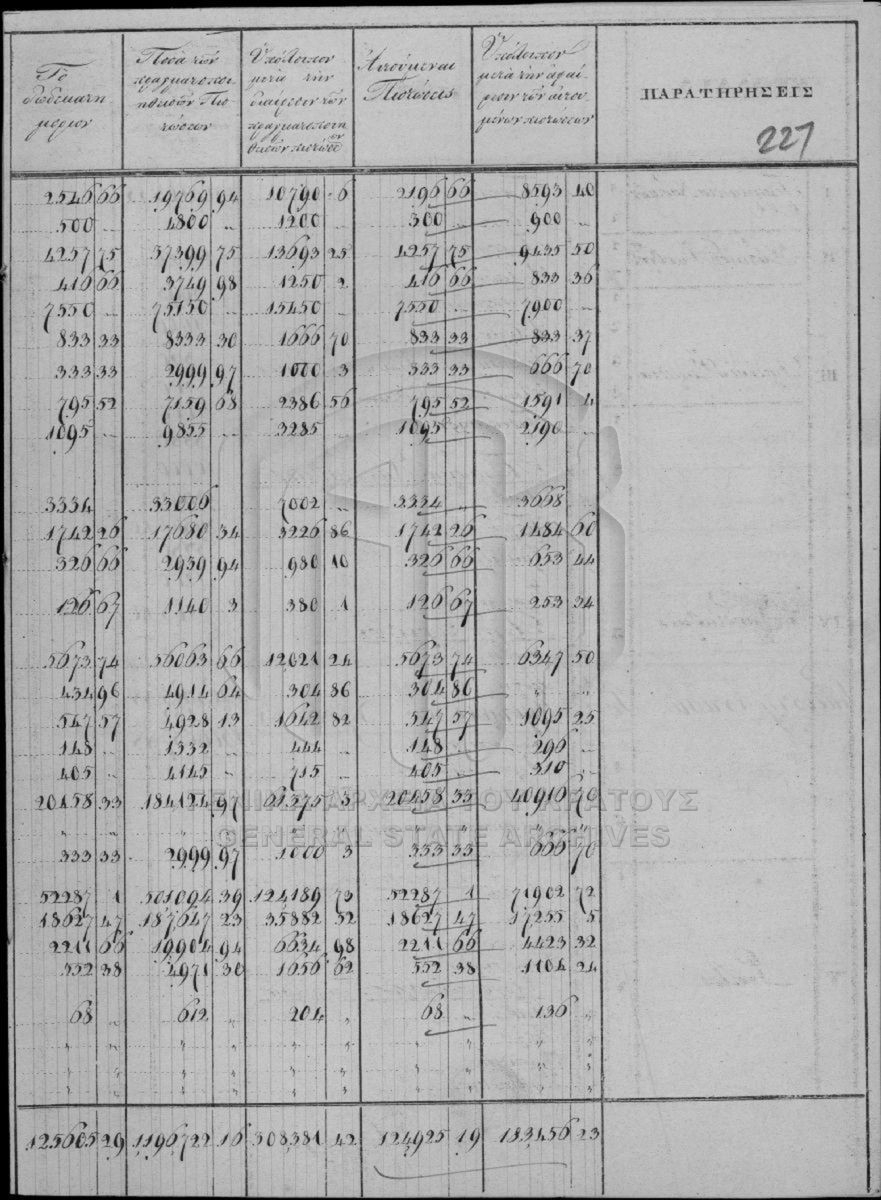 Τὸ δωδεκατημόριον
Ποσὰ τῶν πραγματοποιηθεισῶν Πιστώσεων
Ὑπόλοιπον μετὰ τὴν διαίρεσιν τῶν πραγματοποιηθεισῶν πιστώσ
Αἰτούμεναι Πιστώσεις
Ὑπόλοιπον μετὰ τὴν ἀφαίρεσιν τῶν αἰτουμένων πιστώσεων
ΠΑΡΑΤΗΡΗΣΕΙΣ
227
2546 66 19769 94 10790 6 2196 66 8593 40
500 .. 4800 .. 1200 .. 300 .. 900 ..
4257 75 37399 75 13693 25 4257 75 9435 50
416 66 3749 98 1250 2 416 66 833 36
7550 .. 75150 .. 15450 .. 7550 .. 7900 ..
833 33 8333 30 1666 70 833 33 833 37
333 33 2999 97 1000 3 333 33 666 70
795 52 7159 68 2386 56 795 52 1591 4
1095 .. 9855 .. 3285 .. 1095 .. 2190 ..
3334 33006 7002 .. 3334 „ 3668 ..
1742 26 17680 34 3226 86 1742 26 1484 60
326 66 2939 94 980 10 326 66 653 44
126 67 1140 3 380 1 126 67 253 34
5673 74 56063 66 12021 24 5673 74 6347 50
434 96 4914 64 304 86 304 86 „ „
547 57 4928 13 1642 82 547 57 1095 25
148 .. 1332 .. 444 .. 148 .. 296 ..
405 .. 4145 .. 715 .. 405 .. 310 ..
20458 33 184124 97 61375 3 20458 33 40910 70
„ „ „ „ „ „ „ „ „ „
333 33 2999 97 1000 3 333 33 666 70
52287 1 501094 39 124189 73 52287 1 71902 72
18627 47 187647 23 35882 52 18627 47 17255 5
2211 66 19904 94 6634 98 2211 66 4423 32
552 38 4971 30 1656 62 552 38 1104 24
68 „ 612 „ 204 „ 68 „ 136 „
„ „ „ „ „ „ „ „ „ „
„ „ „ „ „ „ „ „ „ „
„ „ „ „ „ „ „ „ „ „
125605 29 1196722 16 308381 42 124925 19 183456 23
ΓΕΝΙΚΑ ΑΡΧΕΙΑ ΤΟΥ ΚΡΑΤΟΥΣ
GENERAL STATE ARCHIVES